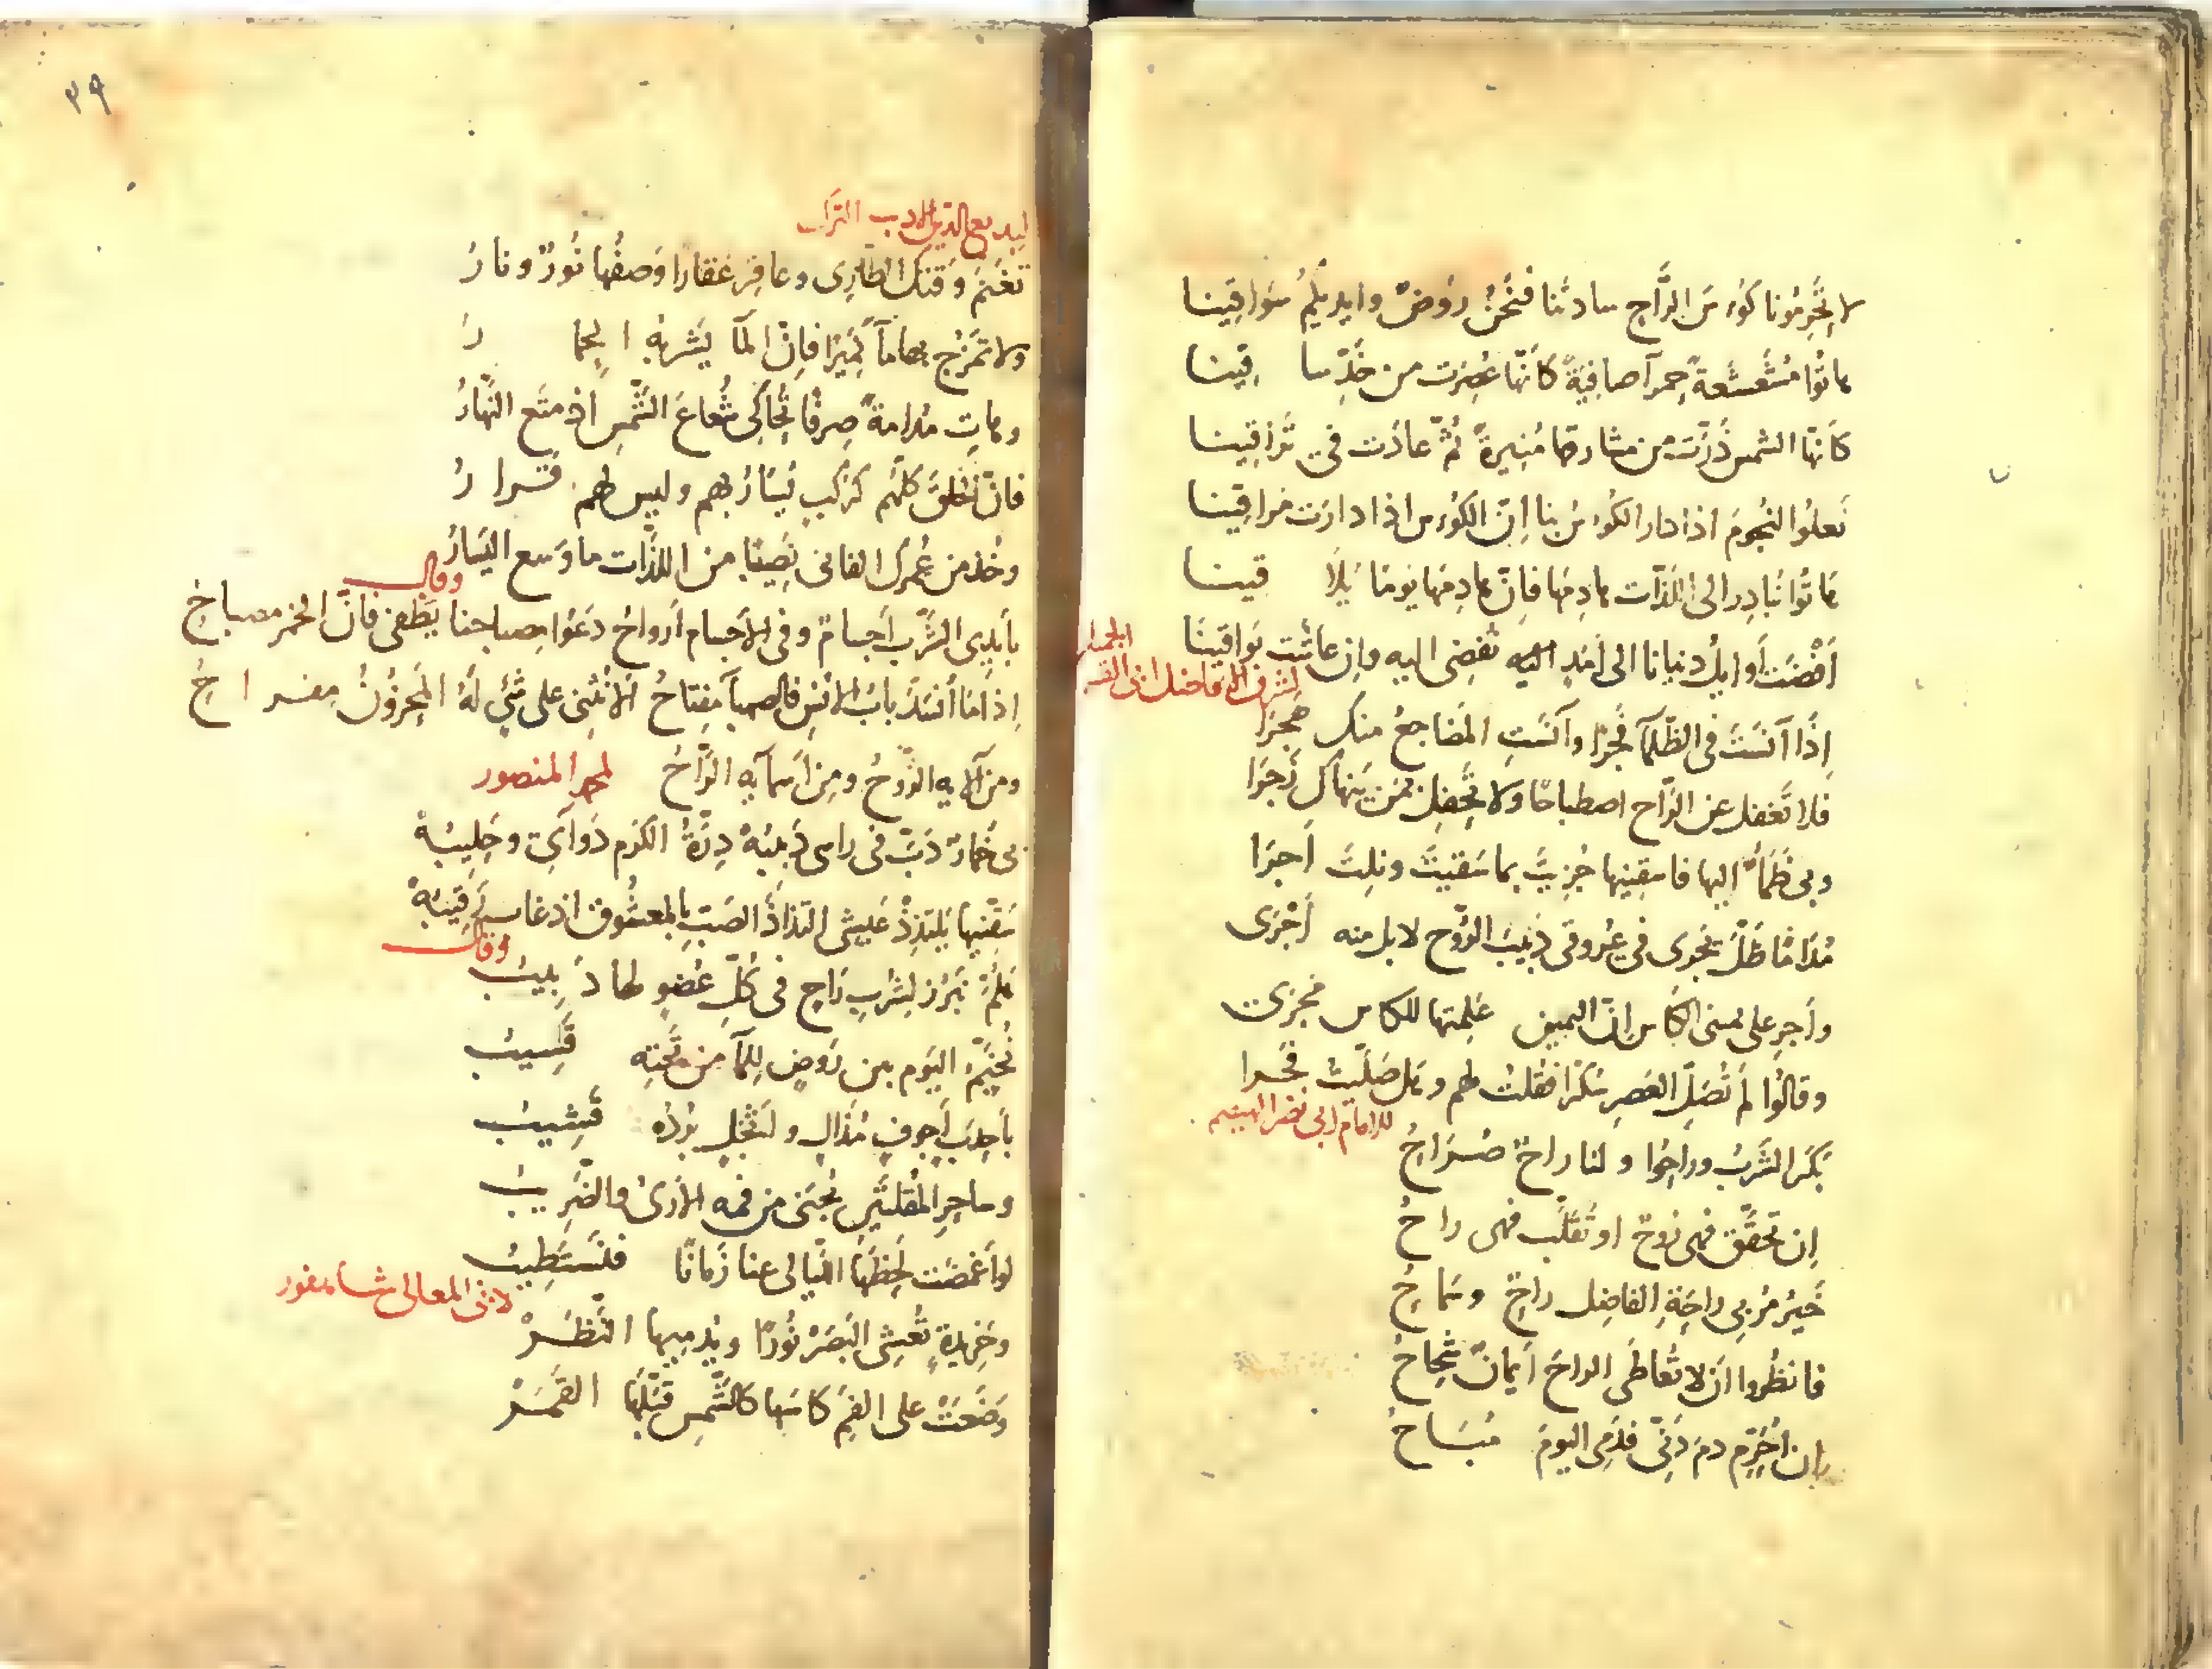 لا تحرمونا كؤس الراح سادتنا فنحن روض وايديكم سواقينا
هاتوا مشعشعة حمرآ صافية كأنها عصرت من خد ساقينا
كأنها الشمس ذرت من مشارقها منيرة ثم عادت في تراقينا
نعلوا النجوم اذا دار الكؤس بنا ان الكؤس اذا دارت مراقينا
هاتوا نبادر الى اللذات هادمها فان هادمها يوما يلاقينا
افضت أوايل دنيانا الى أمد اليه تفضى اليه وان عاشت بواقينا
لشرف الافاضل
إذا آنست في الظلمآ فجرا وآنست المضاجع منك هجرا
فلا تغفل عن الراح اصطباحا ولا تحفل بمن ينهاك زجرا
وبى ظمأ اليها فاسقنيها جزيت بما سقيت ونلت أجرا
مداما ظل تجرى في عروقى دبيب الروح لا بل منه أجرى
وأجر على يمنى الكأس ان اليمين علمتها للكاس مجرى
وقالوا لم تصل العصر سكرا فقلت لهم وهل صليت فجرا
للامام ابى نصر الهيصم
بكر الشرب وراحوا ولنا راح صراح
إن تحقق فهى روح او تقلب فهى راح
خير مربى راحة الفاضل راح وسماح
فانظروا ان لا تعاطى الراح ايمان شحاح
ان أحرم دم دن فدمى اليوم مباح
٣٩
لبديع الدين الاديب التراك
تغنم وقتك الطارى وعاقر عقارا وصفها نور ونار
ولا تمزج بهامآ نميرا فان المآ يشربه الحمار
وهات مدامة صرفا تحاكى شعاع الشمس اذ متع النهار
فان الخلق كلهم كركب يسار بهم وليس لهم قرار
وخذ من عمرك الفانى نصيبا من اللذات ما وسع اليسار
وقال
بأيدى الشرب أجسام وفى الاجسام أرواح دعوا مصباحنا يطفى فان الخمر مصباح
إذا ما انسد باب الانس فالصهبآ مفتاح ألا نثنى على شئ له المحزون مفراح
ومن آلايه الروح ومن اسمآيه الراح
المنصور
بى خمار دب فى راسى دبيبه درة الكرم دوآئى وحليبه
سقنيها يلتذذ عيشى التذاذ الصب بالمعشوق اذ غاب رقيبه
وقال
هلم نبرز لشرب راح فى كل عضو لها دبيب
نخيم اليوم بين روض للمآ من تحته قسيب
بأحدب أجوف مذال ولنثجل برده قشيب
وساحر المقلتين نجنى من فمه الارى والضريب
لو أغمضت لحظها الليالى عنا زمانا فنستطيب
لابى المعالى شاهفور
وخريدة تعشى البصر نورا ويدميها النظر
وضعت على الفم كاسها كالشمس قبلها القمر